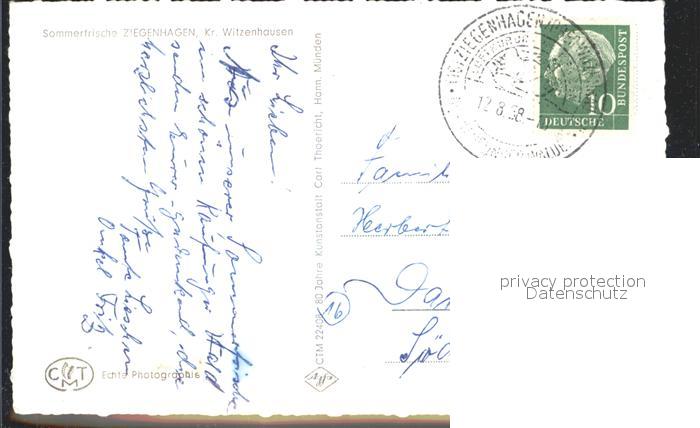 Sommerfrische ZIEGENHAGEN, Kr. Witzenhausen
Ihr Lieben!
Aus unserer Sommerfrische
im schönen Kaufunger Wald
senden Eurer gedenkend, die
herzlichsten Grüße
Tante Lieschen
Onkel Fritz
CTM 22408 80 Jahre Kunstanstalt Carl Thoericht, Hann. Münden
CMT Echte Photographie
ZIEGENHAGEN
12.8.58
10
DEUTSCHE
BUNDESPOST
Famil
Herber
16
Da
privacy protection
Datenschutz